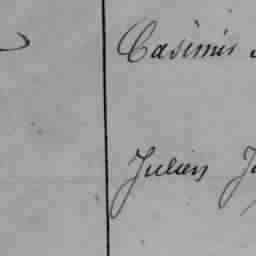 Casimir
Julien